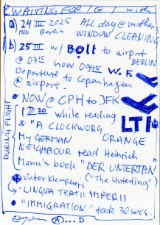 WAITING FOR
a) 24 III 2025 ALL day @ mother
WINDOW CLEANING
b) 25 III w/ Bolt to airport
BERLIN
@ 0715 now 0905 W.F.
Departure to Copenhagen
airport
NOW @ CPH to JFK
1220 while reading
LTI
A CLOCKWORK
ORANGE
My GERMAN
NEIGHBOUR read Heinrich
Mann's book "DER UNTERTAN"
("The Underling")
"LINGUA TERTII IMPERII
"IMMIGRATION" took 30 secs.
DURING FLIGHT